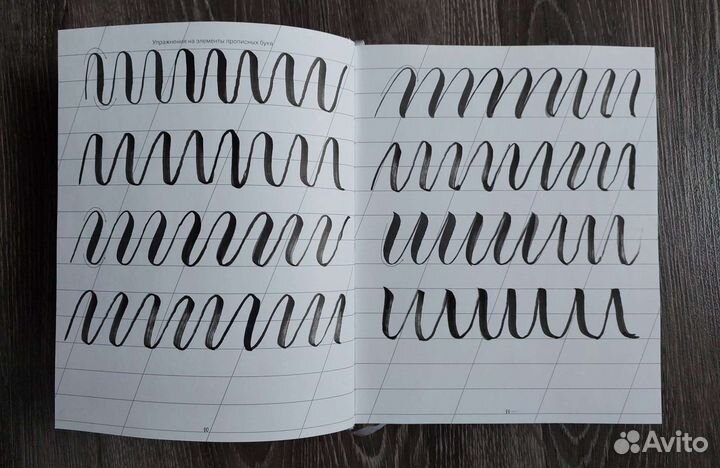 Упражнения на элементы прописных букв
10
11
Avito